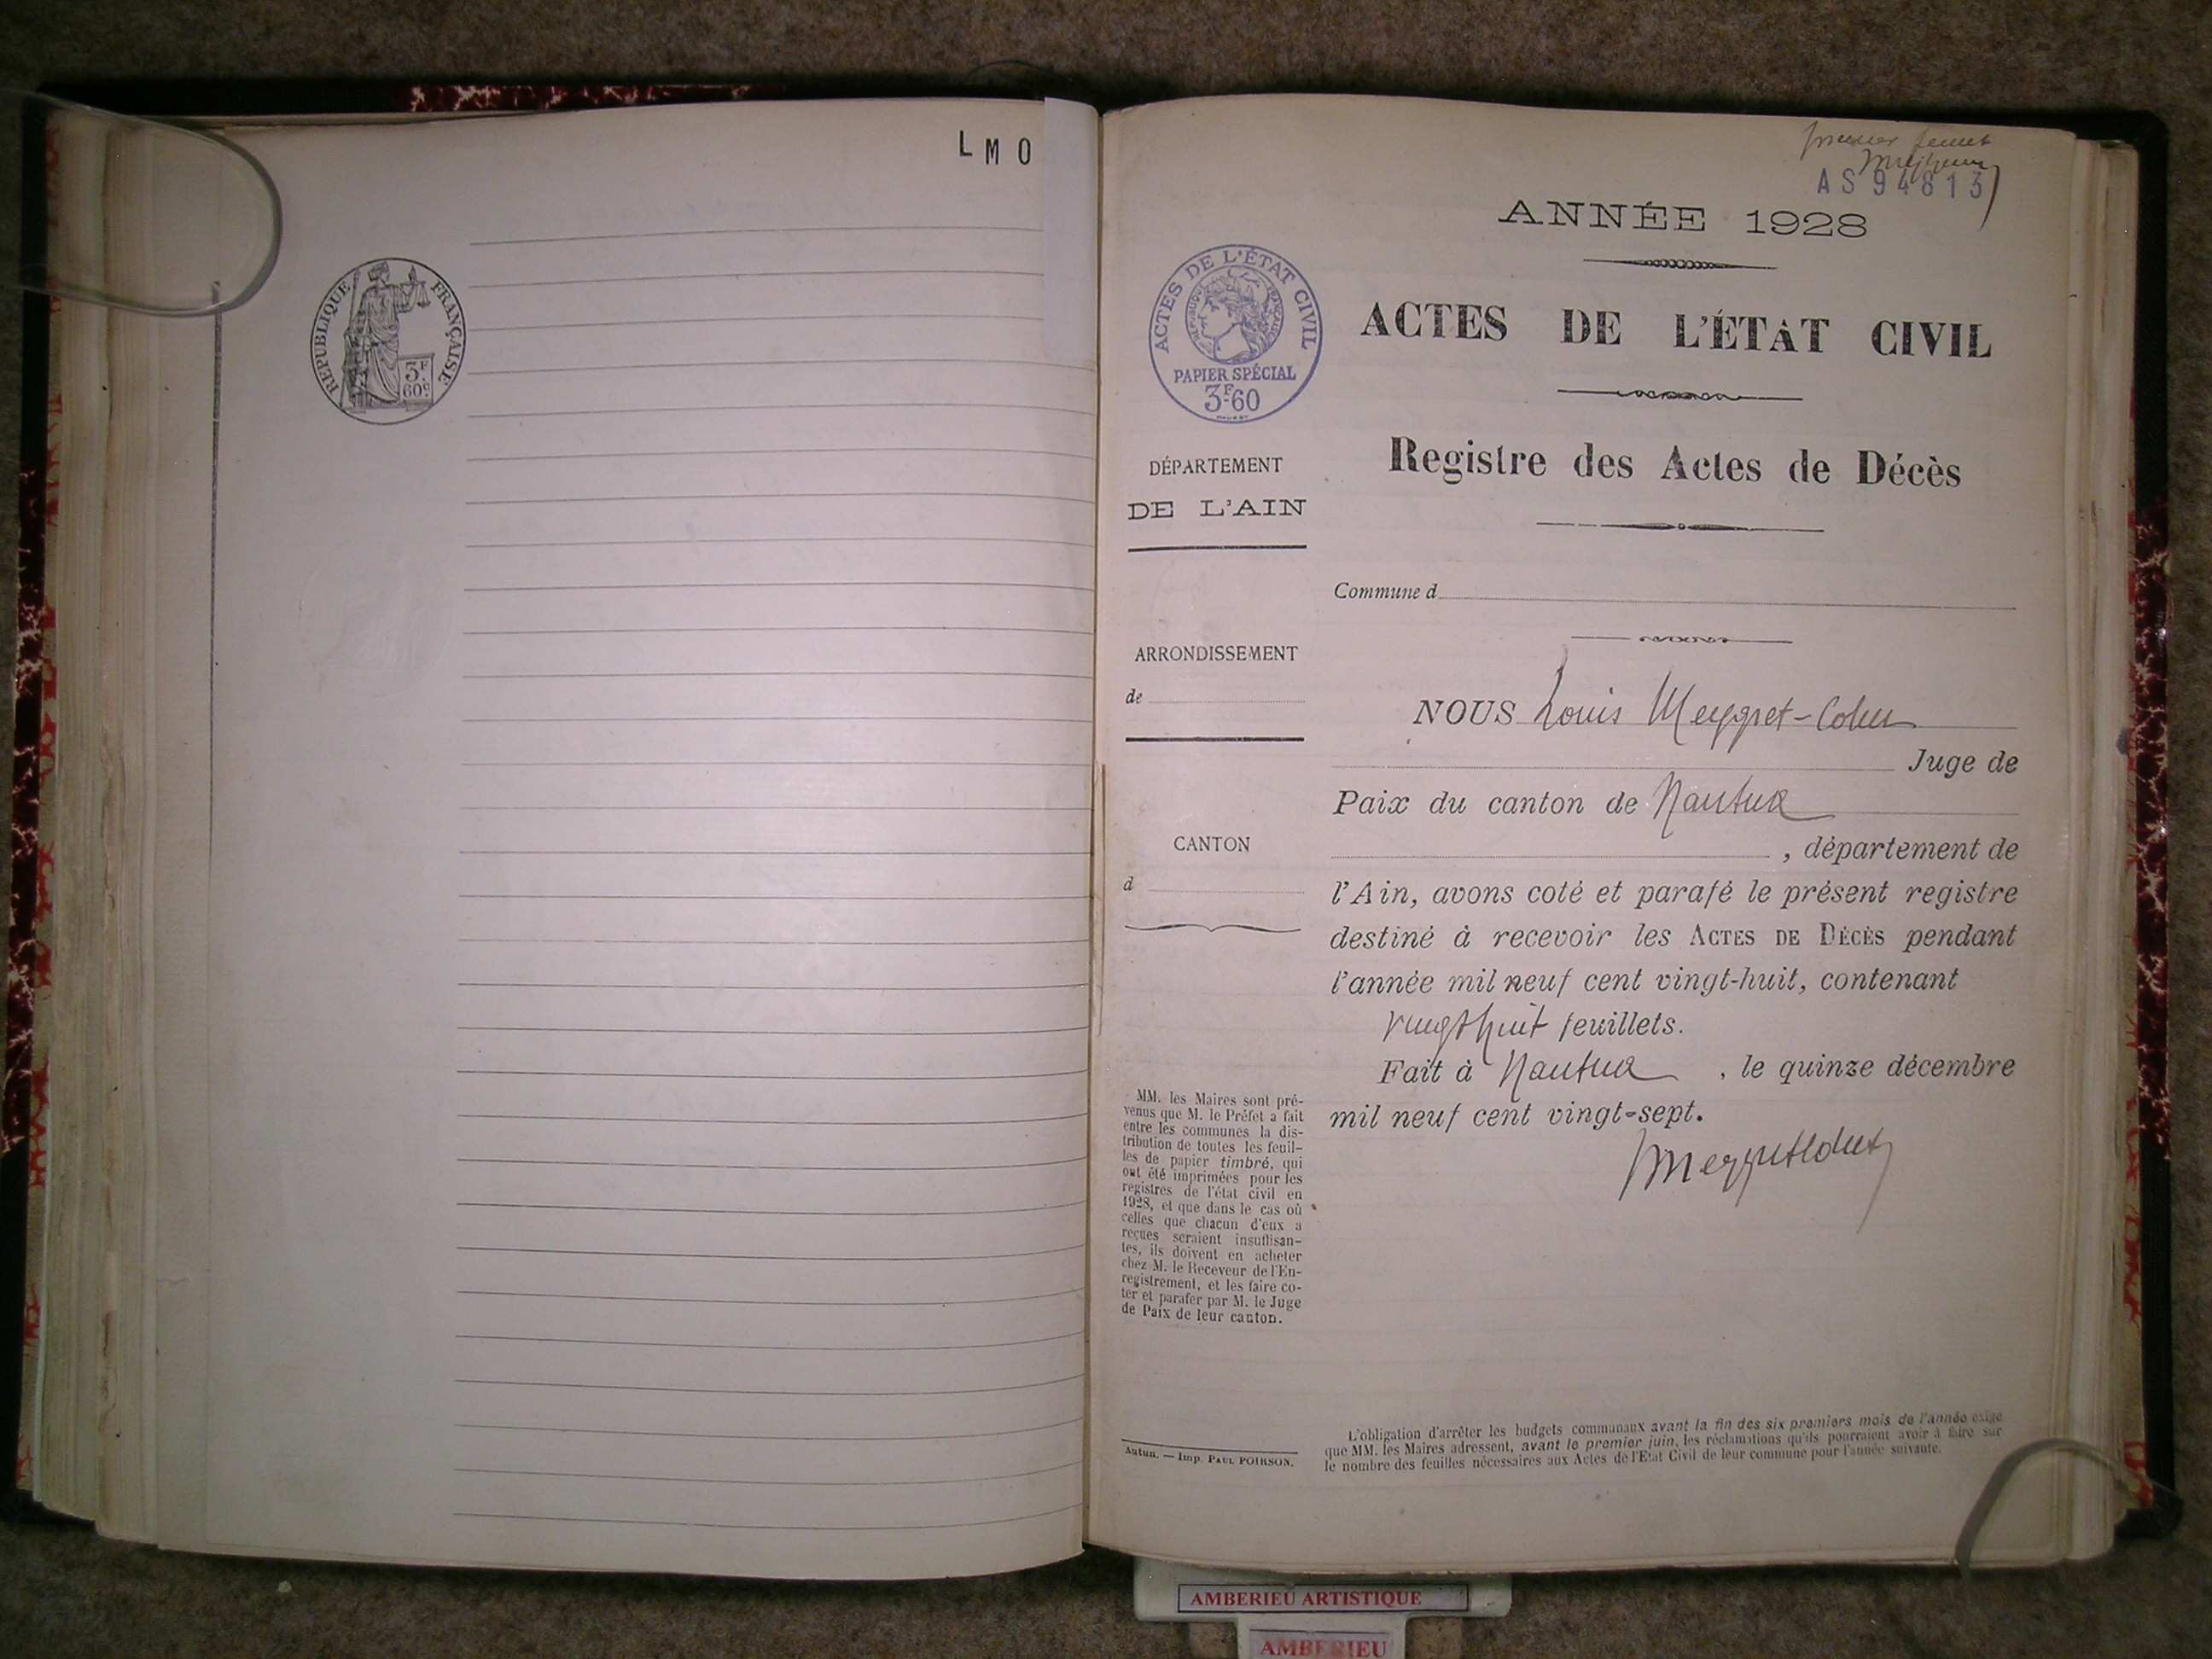 L M O
RÉPUBLIQUE FRANÇAISE
3F
60c.
premier feuillet
AS 94813
ANNÉE 1928
ACTES DE L'ÉTAT CIVIL
RÉPUBLIQUE FRANÇAISE
PAPIER SPÉCIAL
3F60
ACTES DE L'ÉTAT CIVIL
Registre des Actes de Décès
DÉPARTEMENT
DE L'AIN
Commune d
ARRONDISSEMENT
de
NOUS Louis Meygret-Collet
Juge de
Paix du canton de Nantua
CANTON
d
, département de
l'Ain, avons coté et parafé le présent registre
destiné à recevoir les ACTES DE DÉCÈS pendant
l'année mil neuf cent vingt-huit, contenant
vingt huit feuillets.
Fait à Nantua , le quinze décembre
mil neuf cent vingt-sept.
MM. les Maires sont pré-
venus que M. le Préfet a fait
entre les communes la dis-
tribution de toutes les feuil-
les de papier timbré, qui
ont été imprimées pour les
registres de l'état civil en
1928, et que dans le cas où
celles que chacun d'eux a
reçues seraient insuffisan-
tes, ils doivent en acheter
chez M. le Receveur de l'En-
registrement, et les faire co-
ter et parafer par M. le Juge
de Paix de leur canton.
Autun. — Imp. PAUL POIRSON.
L'obligation d'arrêter les budgets communaux avant la fin des six premiers mois de l'année exige
que MM. les Maires adressent, avant le premier juin, les réclamations qu'ils pourraient avoir à faire sur
le nombre des feuilles nécessaires aux Actes de l'Etat Civil de leur commune pour l'année suivante.
AMBERIEU ARTISTIQUE
AMBERIEU